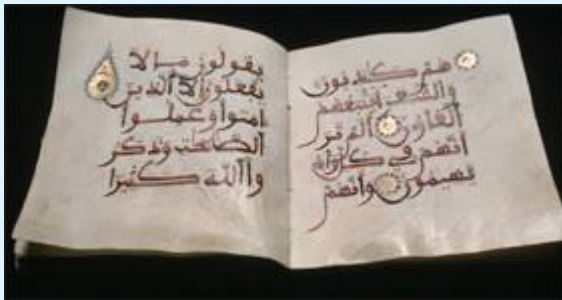 هم كذبون
والشعرا يتبعهم
الغاون الم تر
انهم في كل واد
يهيمون وانهم
يقولون ما لا
يفعلون الا الذين
امنوا وعملوا
الصلحت وذكر
وا الله كثيرا